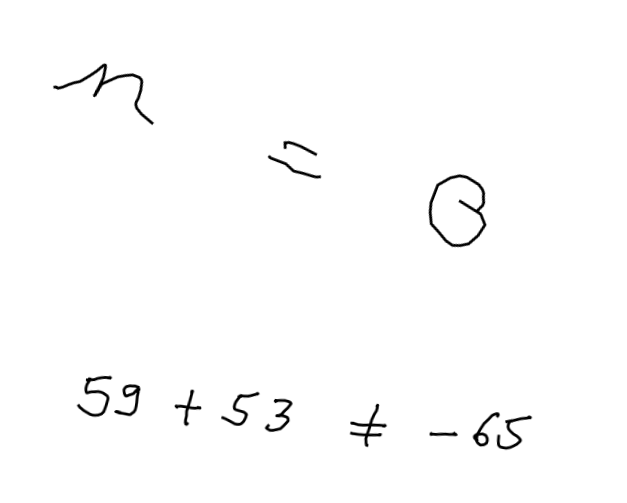 n = 
59 + 53 ≠ - 65